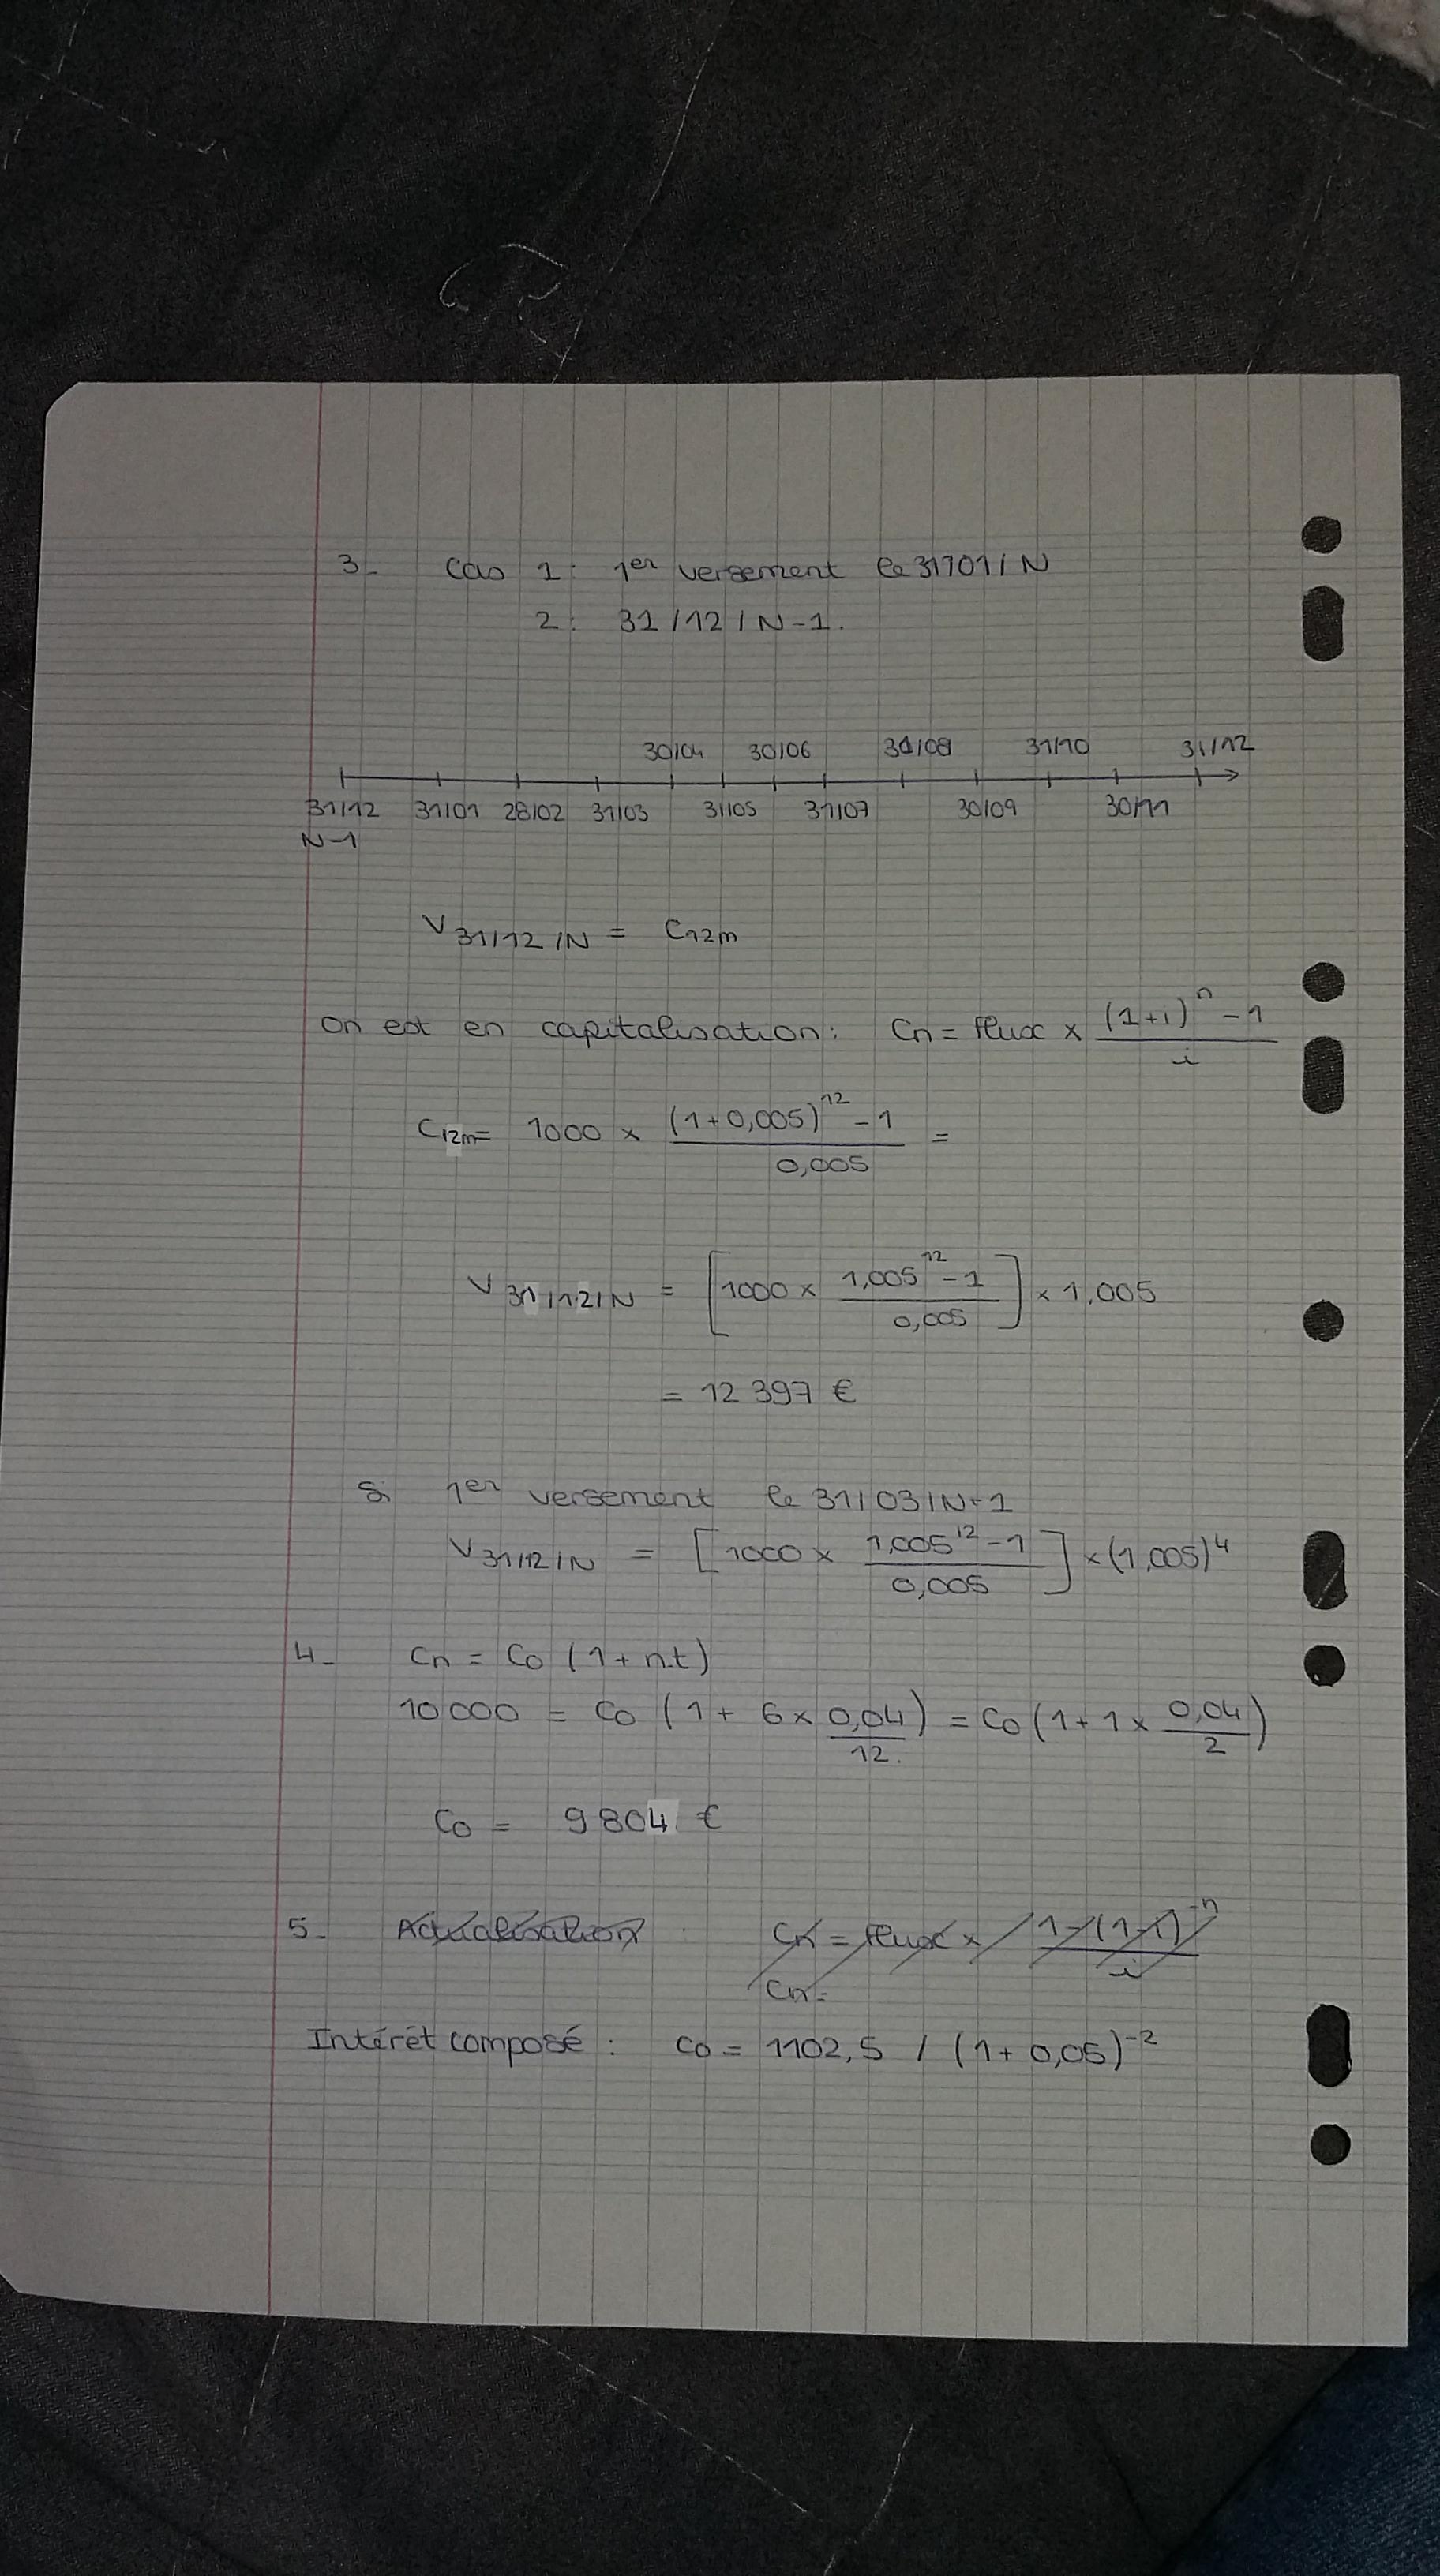 3_ Cas 1: 1er versement le 31/01/N
2: 31/12/N-1.
30/04 30/06 31/08 31/10 31/12
31/12 31/01 28/02 31/03 31/05 31/07 30/09 30/11
N-1
V31/12/N = C12m
On est en capitalisation: Cn = flux × ((1+i)^n - 1)/i
C12m = 1000 × ((1+0,005)^12 - 1)/0,005 =
V31/12/N = [1000 × (1,005^12 - 1)/0,005] × 1,005
= 12 397 €
Si 1er versement le 31/03/N-1
V31/12/N = [1000 × (1,005^12 - 1)/0,005] × (1,005)^4
4_ Cn = C0 (1 + n.t)
10 000 = C0 (1 + 6 × 0,04/12.) = C0 (1 + 1 × 0,04/2)
C0 = 9 804 €
5_ Actualisation : Cn = flux × (1-(1-i)^-n)/i
Cn =
Intérêt composé : C0 = 1102,5 / (1 + 0,05)^-2